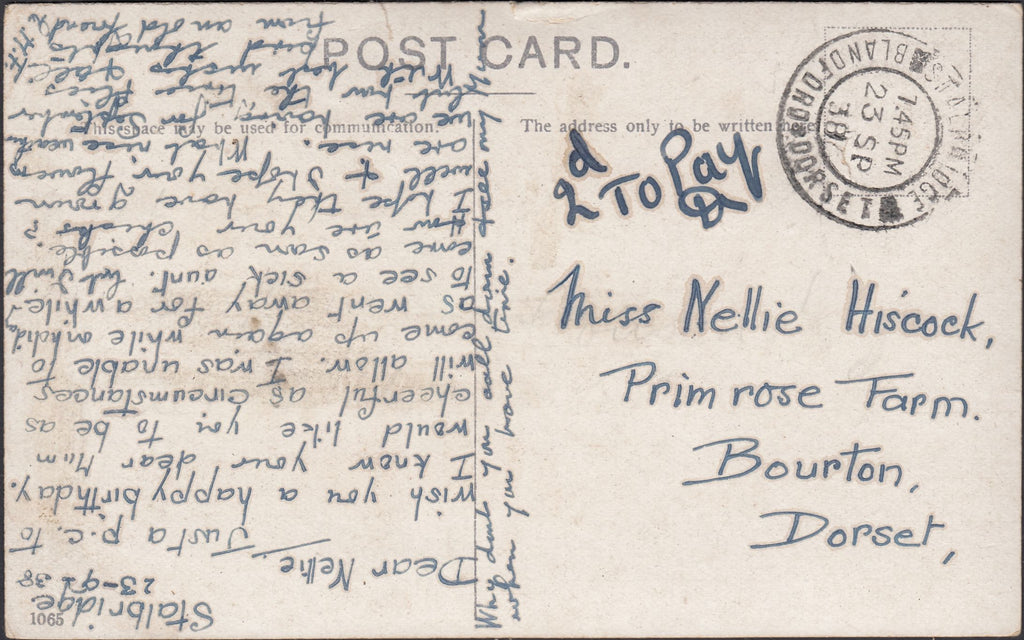 POST CARD.
This space may be used for communication.
The address only to be written
STALBRIDGE
BLANDFORD DORSET
1.45PM
23 SP
38
2d TO Pay
Miss Nellie Hiscock,
Primrose Farm.
Bourton,
Dorset,
Stalbridge
23-9-38
Dear Nellie
Just a p.c. to
wish you a happy birthday.
I know your dear Mum
would like you to be as
cheerful as circumstances
will allow. I was unable to
come up again while on
as went away for a while-
to see a sick aunt. but I will
come as soon as possible.
How are your chicks?
I hope they have grown
well & I hope your flowers
are nice. What nice weather
we are having for September
but how the time flies
With best wishes & all
thoughts
from an old friend
Why dont you call down & see my Mum
when you have time.
1065